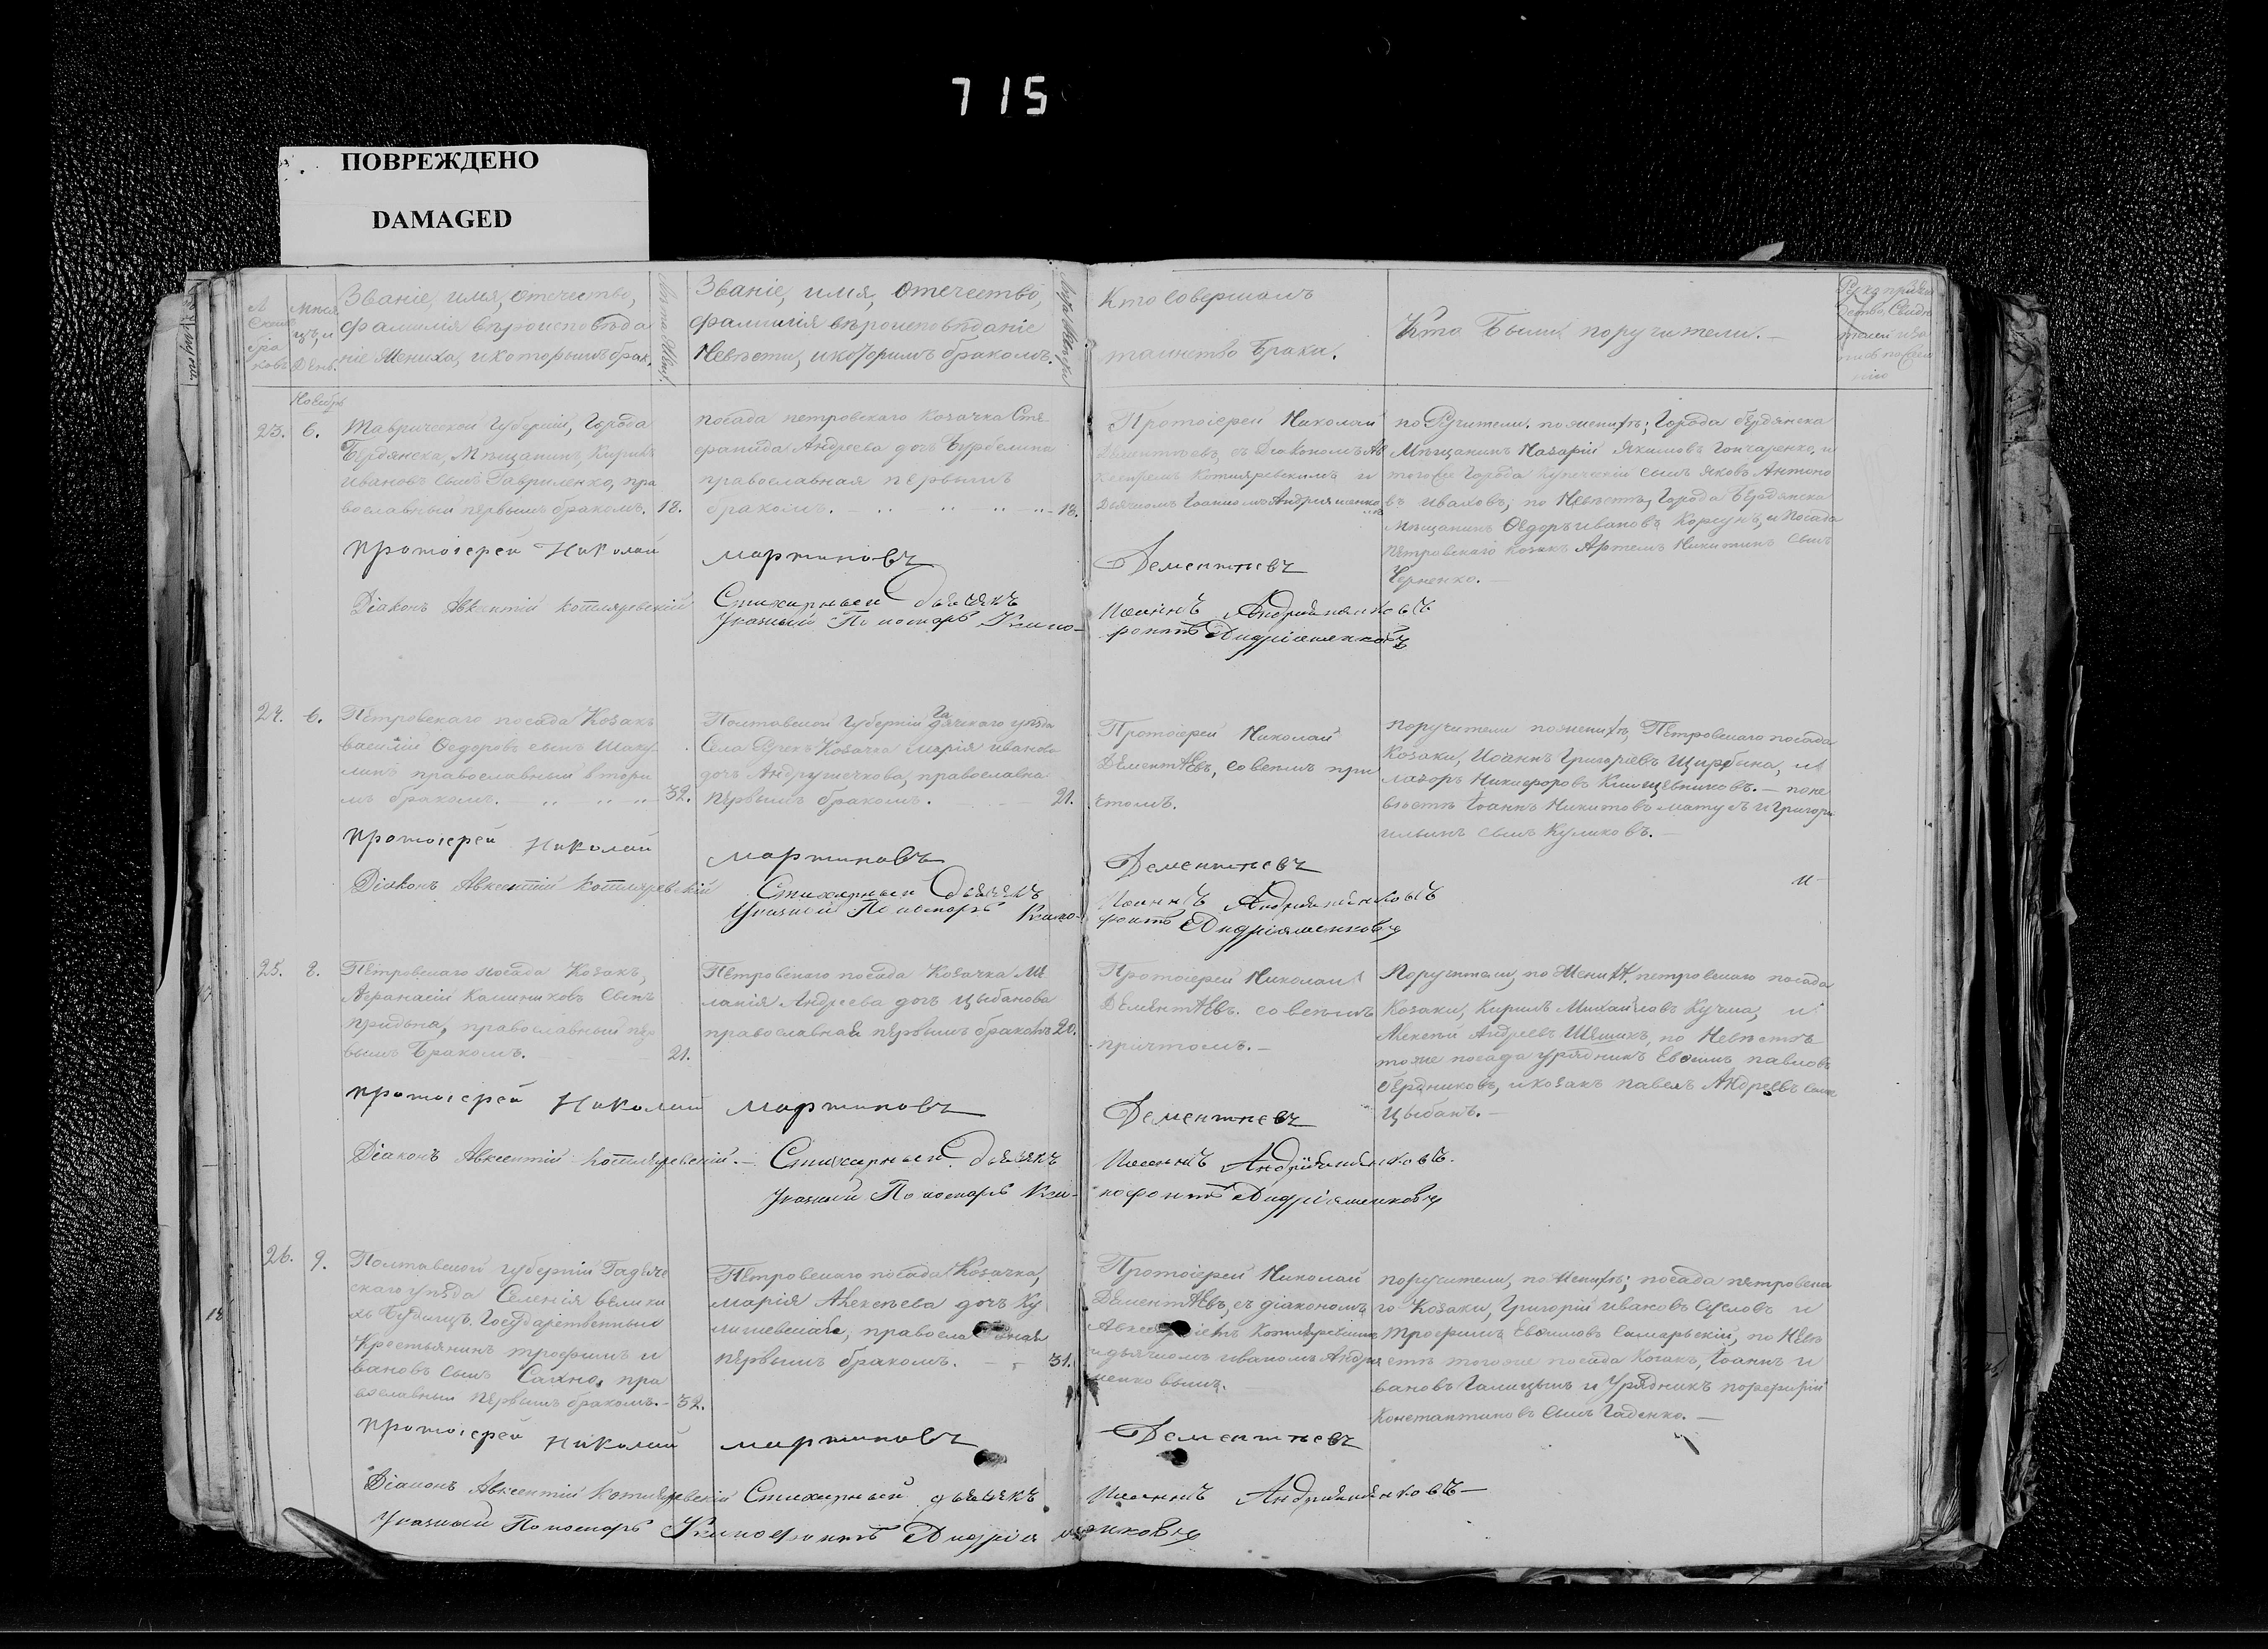 715
ПОВРЕЖДЕНО
DAMAGED
Званіе, имя, отечество,
фамилія вѣроисповѣда
ніе Жениха, и которымъ брак.
Званіе, имя, отечество,
фамилія вѣроисповѣданіе
Невѣсты, и которимъ бракомъ.
Кто совершалъ
таинство брака.
Кто были поручители.
Ноябрь
23. 6.
Таврической Губерніи, Города
Бердянска, Мѣщанинъ, Кирилъ
Ивановъ сынъ Гавриленко, пра
вославный первымъ бракомъ. 18.
посада петровскаго Козачка Сте
фанида Андреева дочь
православная первымъ
бракомъ. 18.
Протоіерей Николай
Дементѣевъ, съ Діакономъ Ав
ксентіемъ Котляревскимъ и
Дьячкомъ Іоанномъ
поручители. по женихѣ; Города бердянска
Мѣщанинъ Назарій Якимовъ Гончаренко, и
того же Города Купеческій сынъ Яковъ Антоно
въ Ивановъ; по Невѣстѣ, Города Бердянска
Мѣщанинъ Ѳедоръ Ивановъ Коржунъ, и Посада
Петровскаго козакъ Артемъ Никитинъ сынъ
Черненко.
Протоіерей Николай Мартиновъ Дементьевъ
Діаконъ Авксентій Котляревскій Стихарный дьячекъ Иоаннъ Андріяненковъ
Указный Пономарь Ксено-
фонтъ Андріяненковъ
24. 6.
Петровскаго посада Козакъ
Василій Ѳедоровъ сынъ Шаку
линъ православный втори
мъ бракомъ. 32.
Полтавской Губерніи Гадячскаго уѣзда
Села Козачка Марія Иванова
дочь Андрушечкова, православна
первымъ бракомъ. 21.
Протоіерей Николай
Дементѣевъ, со всемъ при
чтомъ.
поручители по женихѣ, Петровскаго посада
Козаки, Иоаннъ Григорьевъ Щирбина, и
Лазорь Никифоровъ — по не
вѣстѣ Іоаннъ Никитовъ и Григорій
Ильинъ сынъ Куликовъ.
Протоіерей Николай Мартиновъ Дементьевъ
Діаконъ Авксентій Котляревскій Стихарный дьячекъ Иоаннъ Андріяненковъ
Указный Пономарь Ксено-
фонтъ Андріяненковъ
25. 8.
Петровскаго посада Козакъ,
Афанасій сынъ
придьна, православный пер
вымъ бракомъ. 21.
Петровскаго посада Козачка Ме
ланія Андреева дочь Цыбанова
православная первымъ бракомъ 20.
Протоіерей Николай
Дементѣевъ. со всемъ
причтомъ.
Поручители, по Женихѣ, петровскаго посада
Козаки, Кирилъ Михайловъ Кучма, и
Алексѣй Андреевъ по Невѣстѣ
тоже посада урядникъ Евѳимъ павловъ
Бердниковъ, и козакъ павелъ Андреевъ сынъ
Цыбань.
Протоіерей Николай Мартиновъ Дементьевъ
Діаконъ Авксентій Котляревскій. Стихарный дьячекъ Иоаннъ Андріяненковъ.
Указный Пономарь Ксе-
нофонтъ Андріяненковъ
26. 9.
Полтавской губерніи Гадяче
скаго уѣзда Селенія Велики
хъ Будищъ. Государственный
Крестьянинъ Трофимъ И
вановъ сынъ Сахно, пра
вославный первымъ бракомъ. 32.
Петровскаго посада Козачка,
Марія Алексеева дочь Ку
лишевская, православная
первымъ бракомъ. 31.
Протоіерей Николай
Дементѣевъ, съ діакономъ
Котляревскимъ
и дьячкомъ Иваномъ Андрія
ненковымъ.
поручители, по Женихѣ; посада петровска
го Козаки, Григорій Ивановъ и
Трофимъ Евѳимовъ Самарьскій, по Невѣ
стѣ того же посада Козакъ, Іоаннъ И
вановъ Галицынъ и Урядникъ порфирій
Константиновъ сынъ Гаденко.
Протоіерей Николай Мартиновъ Дементьевъ
Діаконъ Авксентій Котляревскій Стихарный дьячекъ Иоаннъ Андріяненковъ
Указный Пономарь Ксенофонтъ Андріяненковъ